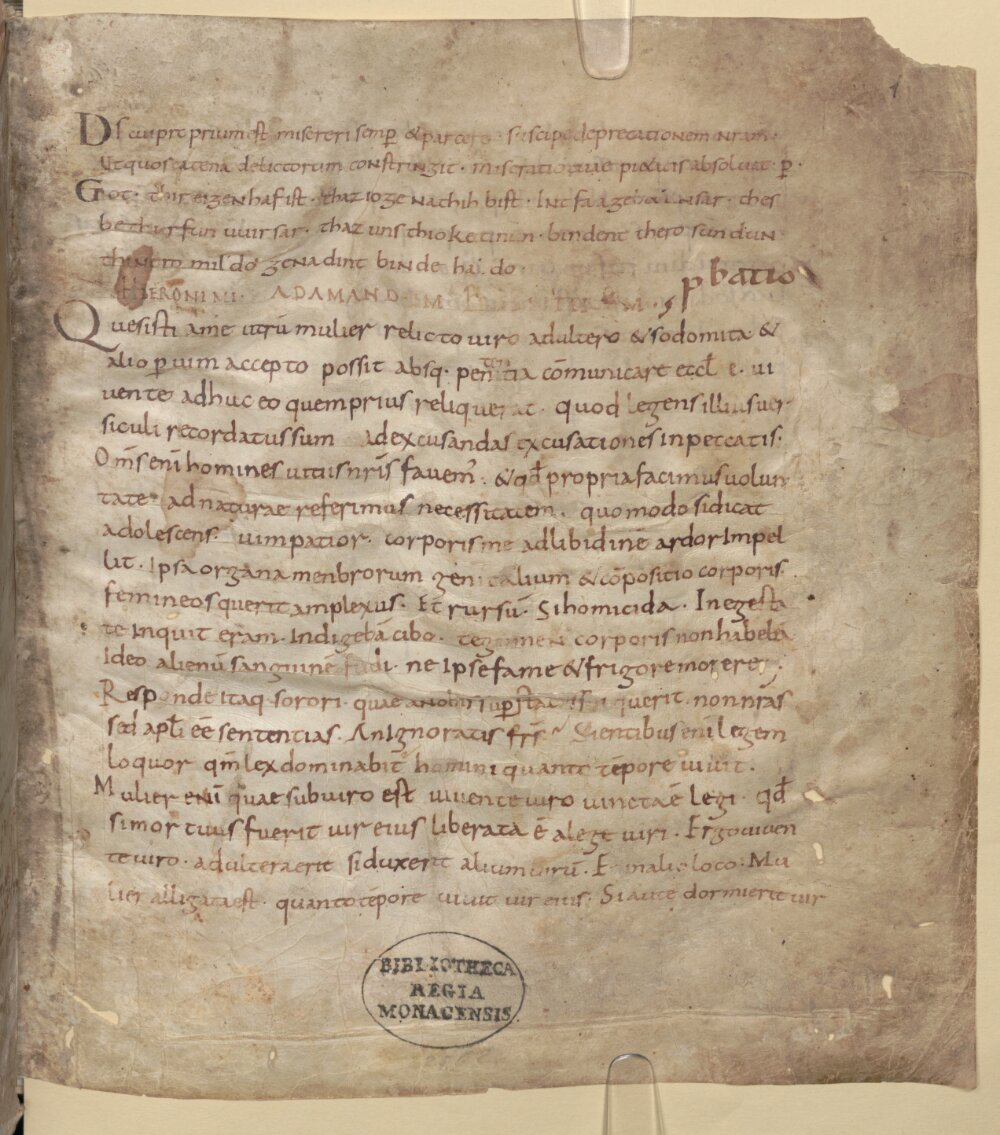 1
Ds cui proprium est misereri semp & parcere · suscipe deprecationem nram ·
Ut quos catena delictorum constringit · miseratio tuae pietatis absoluat · p̄ ·
Got · thir eigenhaf ist · thaz io genathih bist · Intfaa gebet unsar · thes
bethurfun uuir sar · thaz uns thio ketinun · bindent thero sundun
thinero mildo genad intbinde haldo
pbatio
HIERONIMI · AD AMAND
Quesisti a me utrū mulier relicto uiro adultero & sodomita &
alio p uim accepto possit absq· penitētia cōmunicare eccl̄ę · ui
uente adhuc eo quem prius reliquerat · quod legens illius uer
siculi recordatus sum ad excusandas excusationes in peccatis ·
Om̄s enī homines uitiis nr̄is fauem̄ · & qđ propria facimus volun
tate ad naturae referimus necessitatem · quomodo si dicat
adolescens · uim patior · corporis me ad libidinē ardor Impel
lit · Ipsa organa menbrorum genitalium & cōpositio corporis ·
femineos querit amplexus · Et rursū · Si homicida · In egesta
te inquit eram · Indigebā cibo · tegimen corporis non habebā
Ideo alienū sanguinē fudi · ne Ipse fame & frigore morerer ;
Responde itaq· sorori · quae a nobis sup statu suo querit · non nr̄as
sed apl̄i eē sententias · An Ignoratis fr̄r̄ Scientibus enī legem
loquor qm̄ lex dominabit̄ homini quanto tēpore uiuit ·
Mulier enī quae sub uiro est uiuente uiro uincta ē legi · qđ
si mortuus fuerit uir eius liberata ē a lege uiri · Ergo uiuen
te uiro · adultera erit si duxerit alium uirū · Et in alio loco · Mu
lier alligata est · quanto tēpore uiuit uir eius · Si autē dormierit uir
BIBLIOTHECA
REGIA
MONACENSIS.